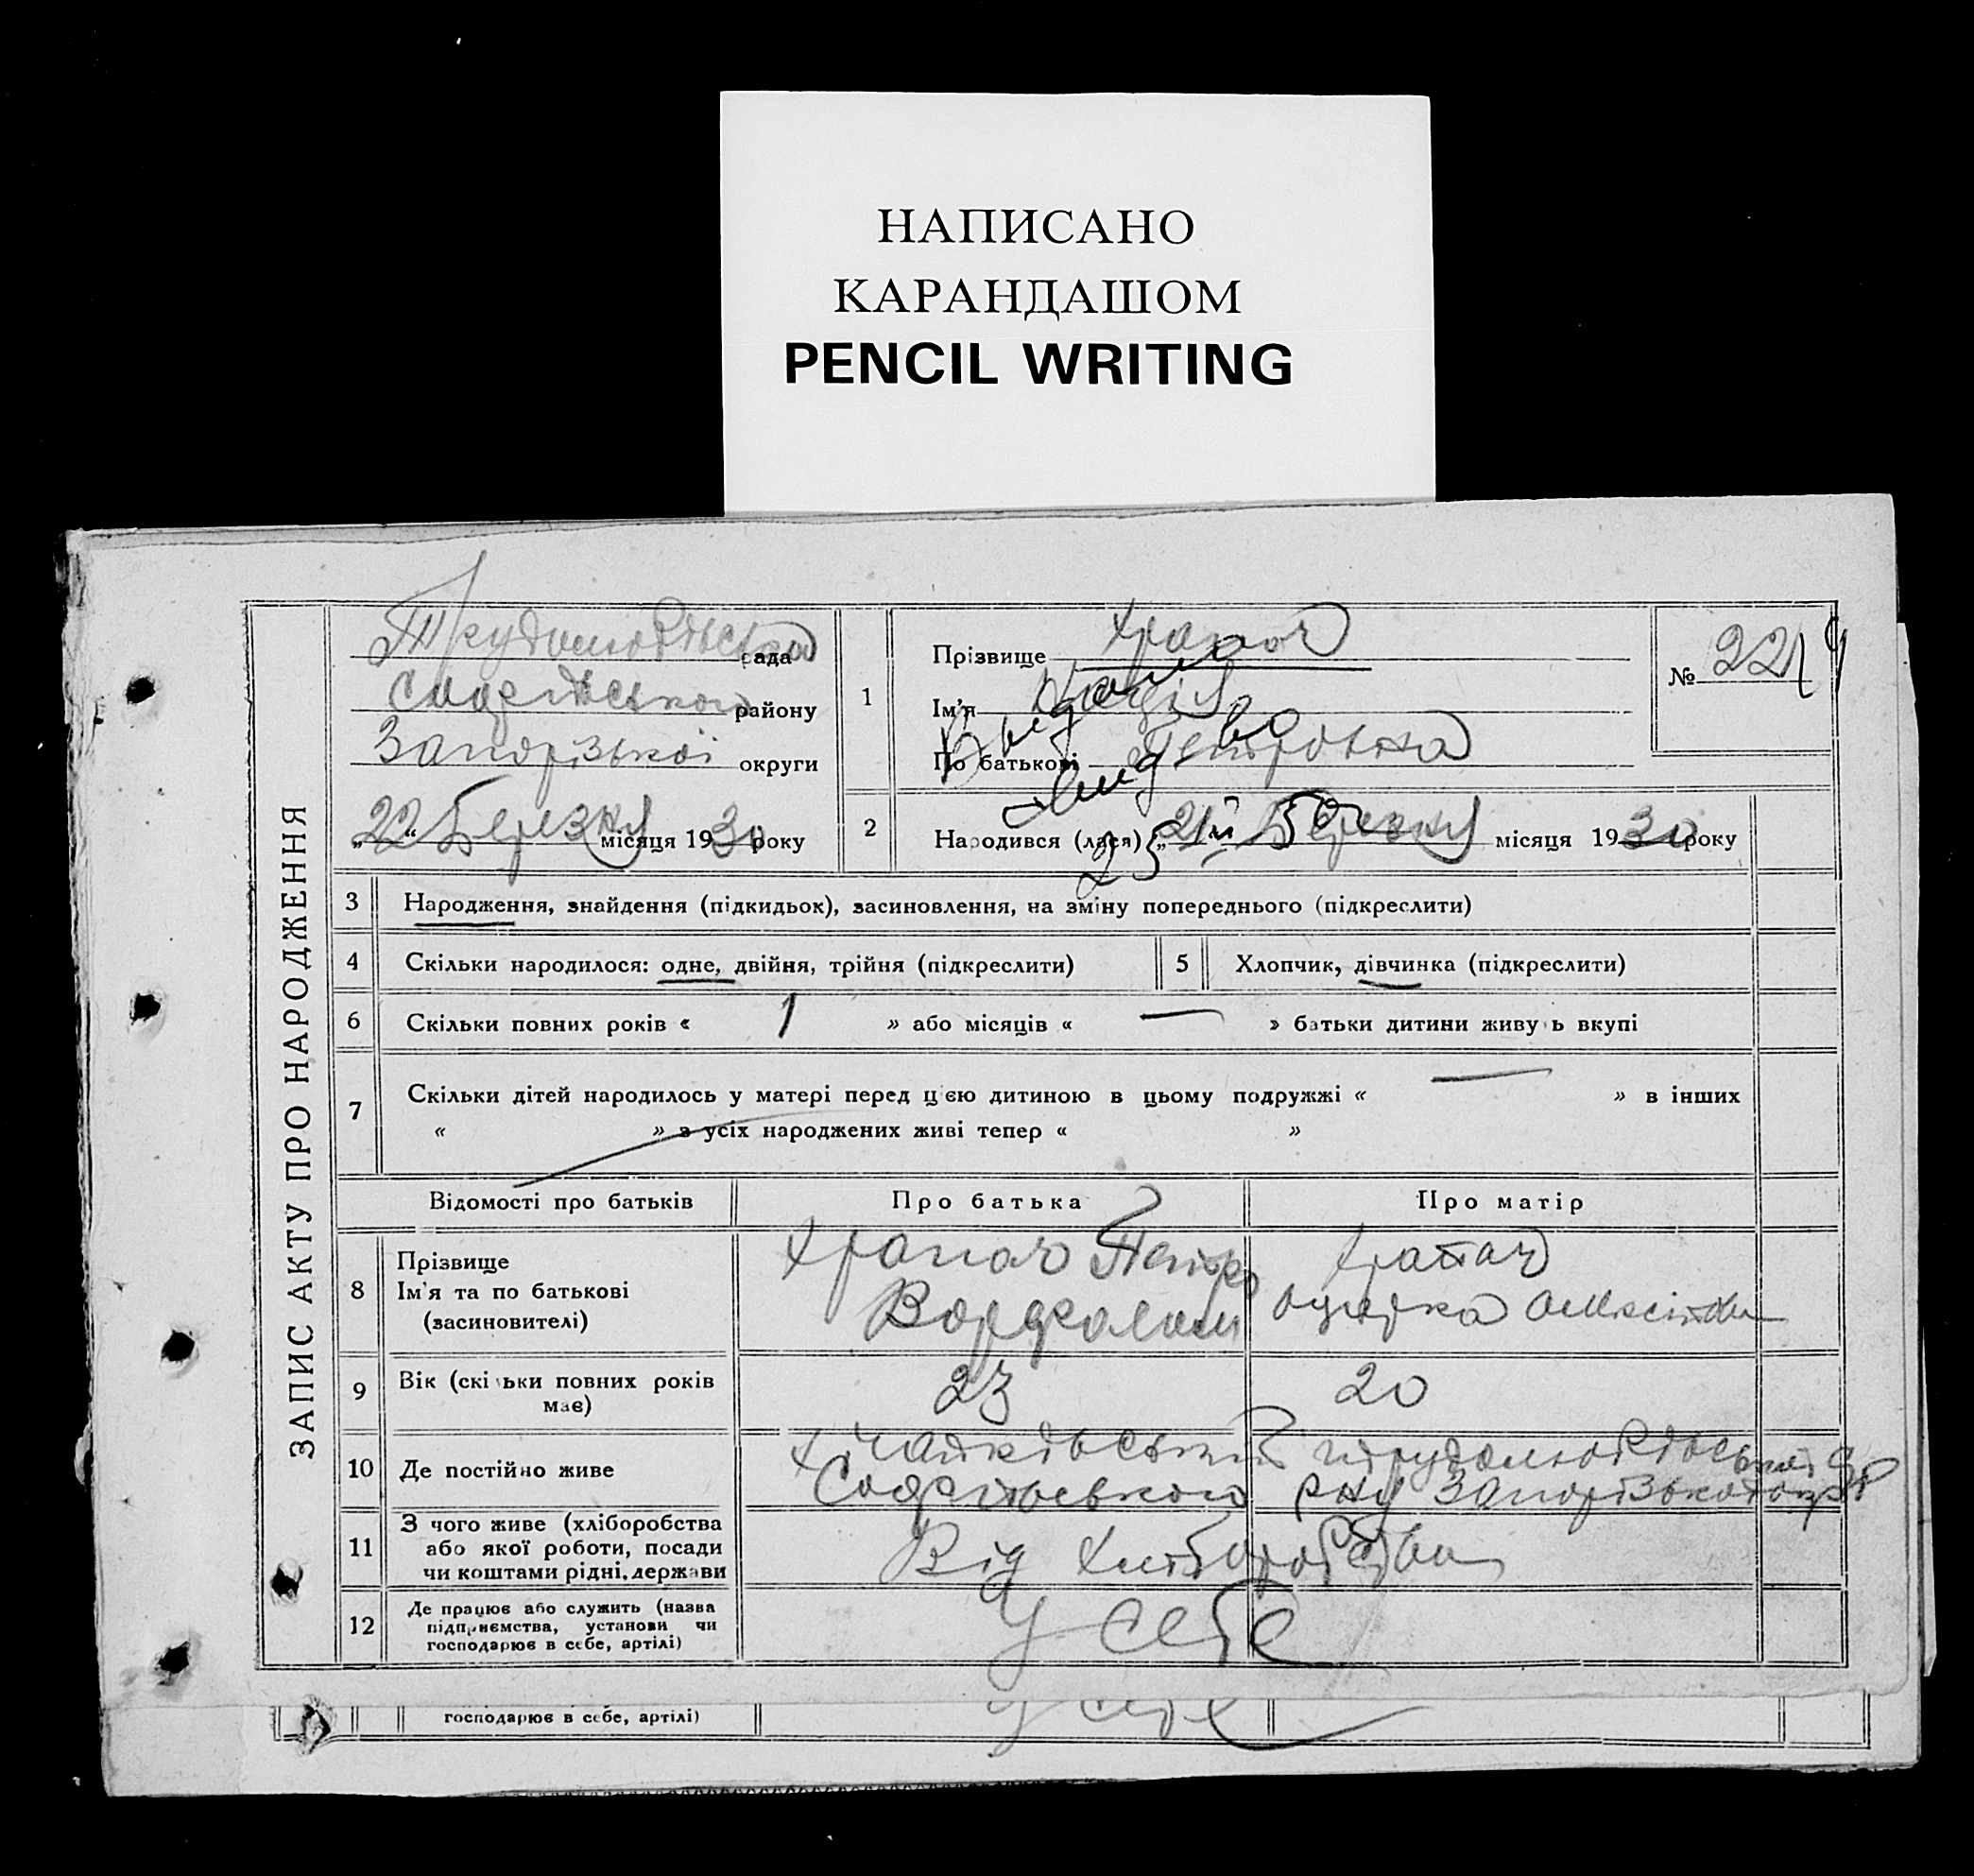 НАПИСАНО
КАРАНДАШОМ
PENCIL WRITING
ЗАПИС АКТУ ПРО НАРОДЖЕННЯ
рада
району
Запорізької округи
„22“ Березня місяця 1930 року
1
Прізвище Храпач
Ім'я
По батькові Петровна
№ 22
2
Народився (лася) „21й Березня місяця 1930 року
3 Народження, знайдення (підкидьок), засиновлення, на зміну попереднього (підкреслити)
4 Скільки народилося: одне, двійня, трійня (підкреслити)
5 Хлопчик, дівчинка (підкреслити)
6 Скільки повних років « 1 » або місяців « — » батьки дитини живуть вкупі
7 Скільки дітей народилось у матері перед цією дитиною в цьому подружжі « — » в інших
« » з усіх народжених живі тепер « »
Відомості про батьків
Про батька
Про матір
8 Прізвище
Ім'я та по батькові
(засиновителі)
Храпач Петро
Храпач
9 Вік (скільки повних років
має)
23
20
10 Де постійно живе
Софіївського р-ну Запорізької
11 З чого живе (хліборобства
або якої роботи, посади
чи коштами рідні, держави
Від хліборобства
12 Де працює або служить (назва
підприємства, установи чи
господарює в себе, артілі)
У себе
господарює в себе, артілі)
у себе